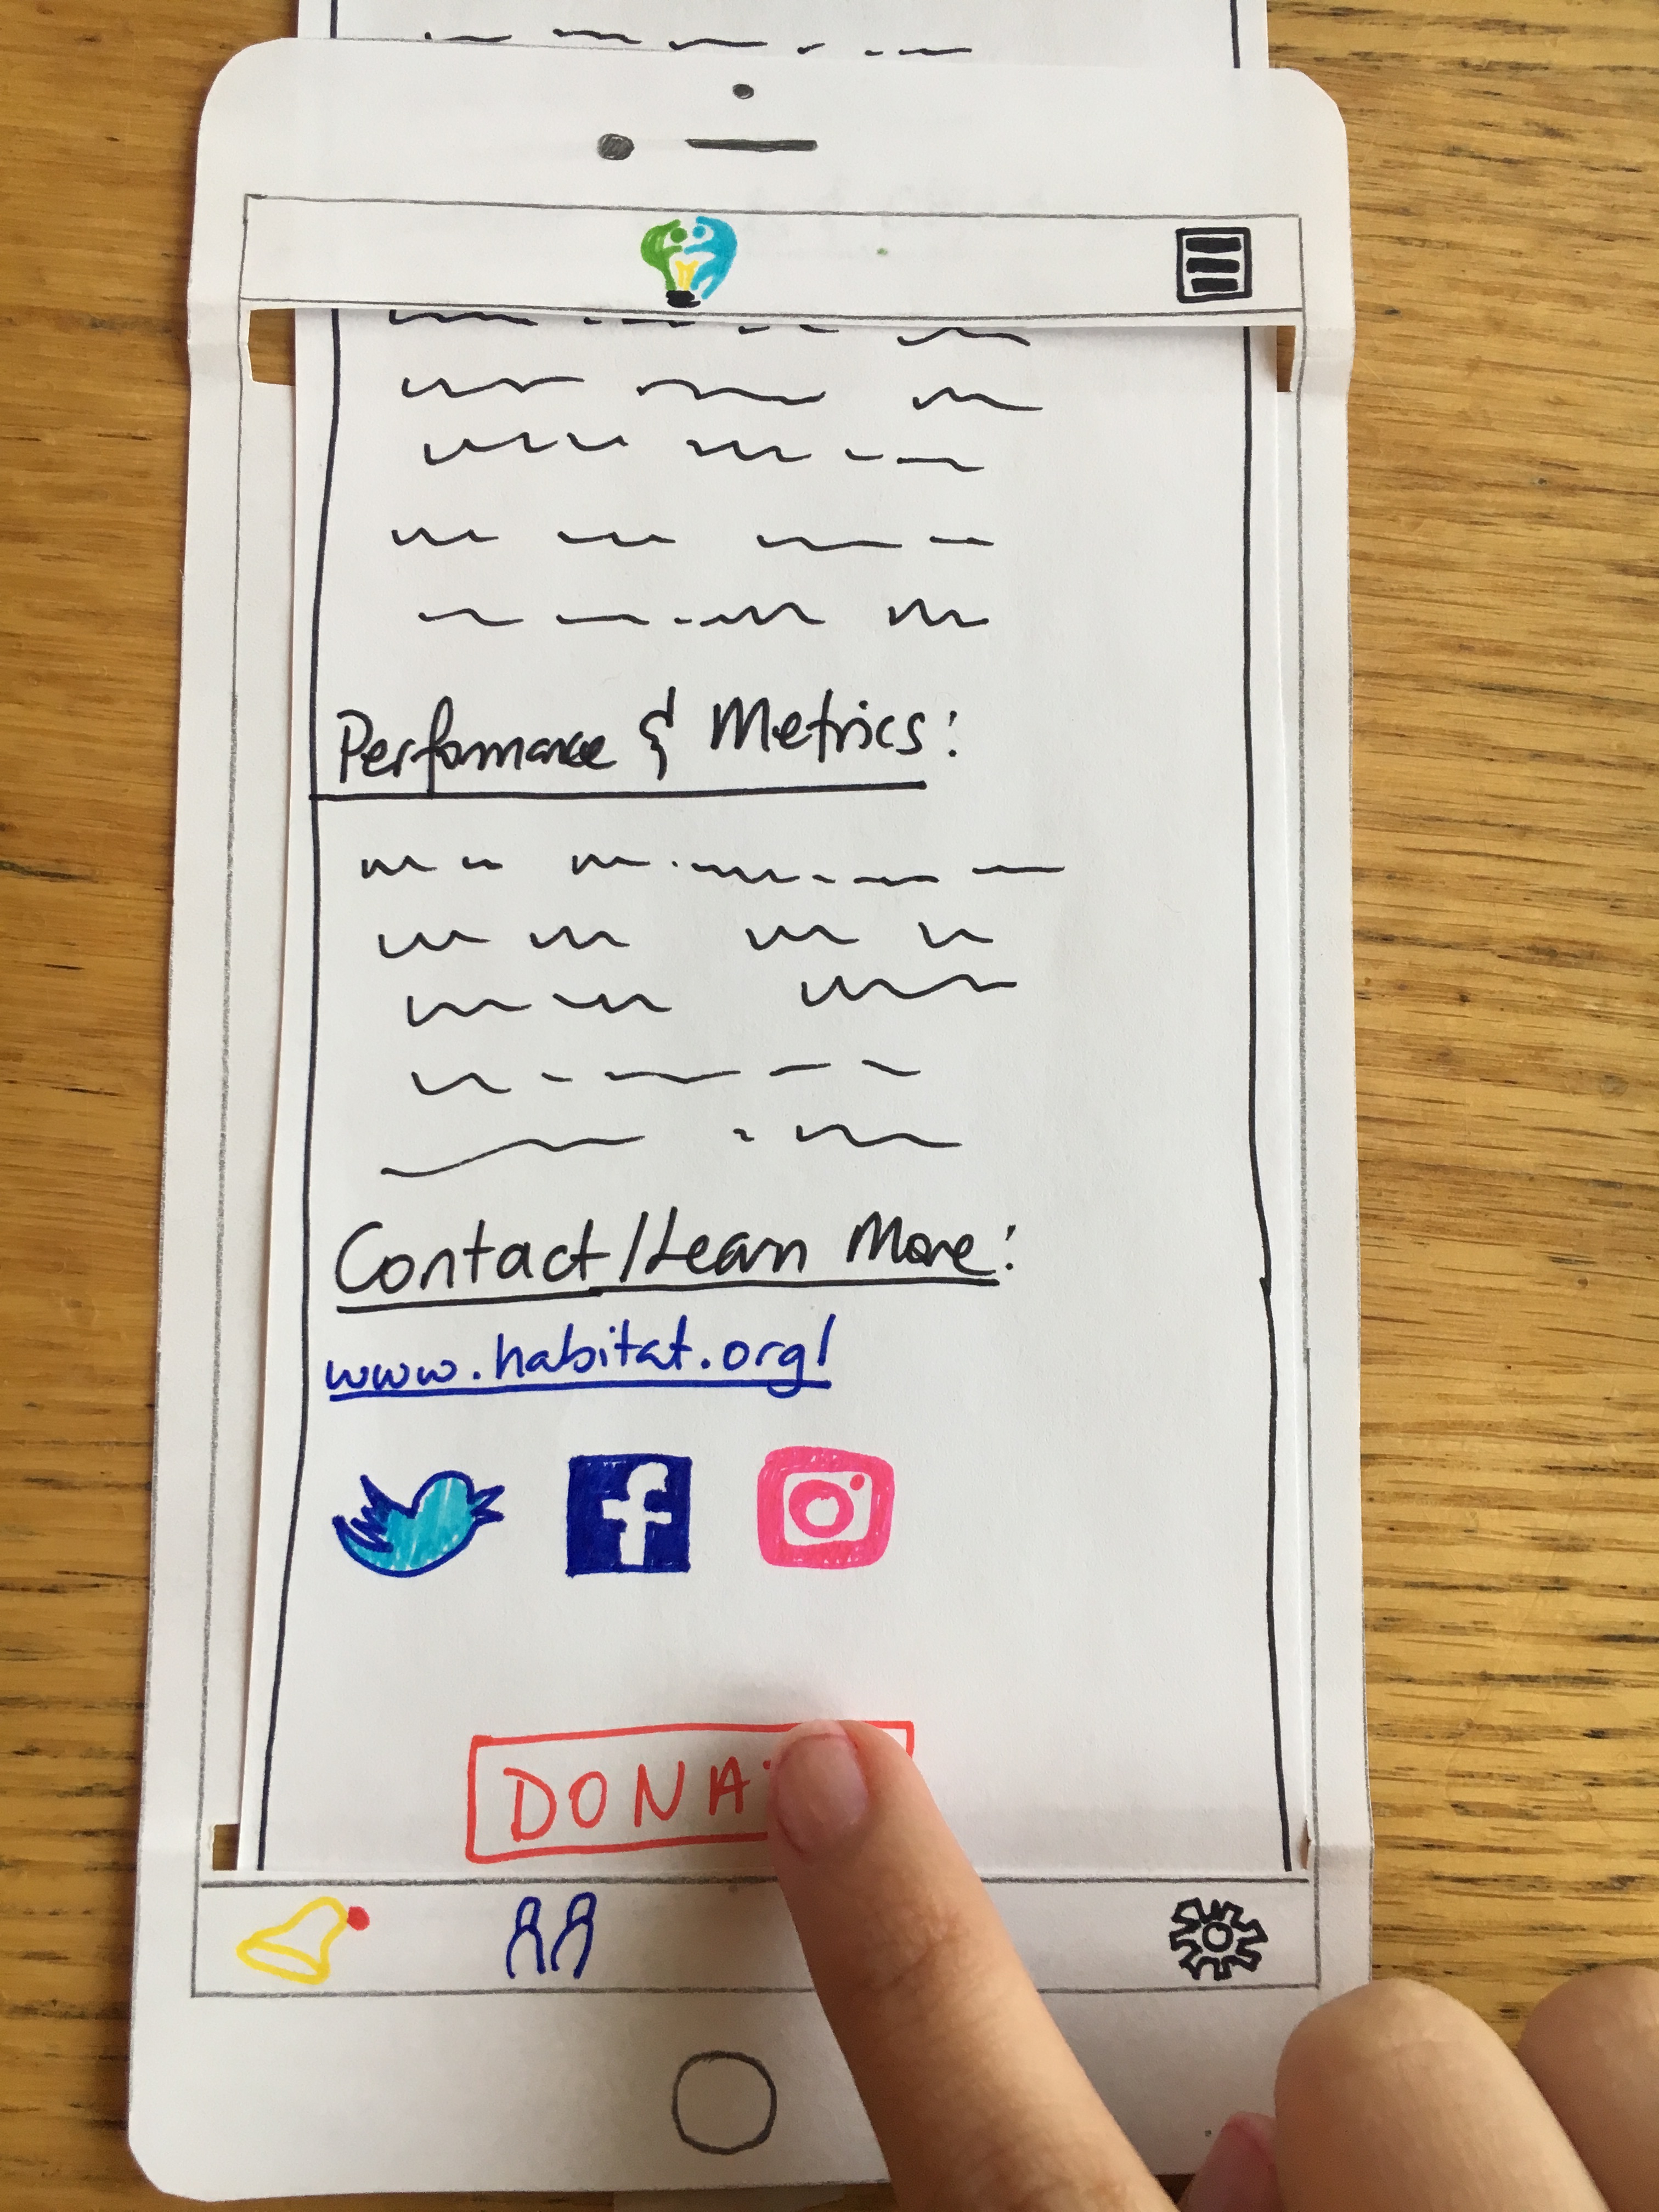 Performance & Metrics:
Contact/Learn More:
www.habitat.org/
DONA